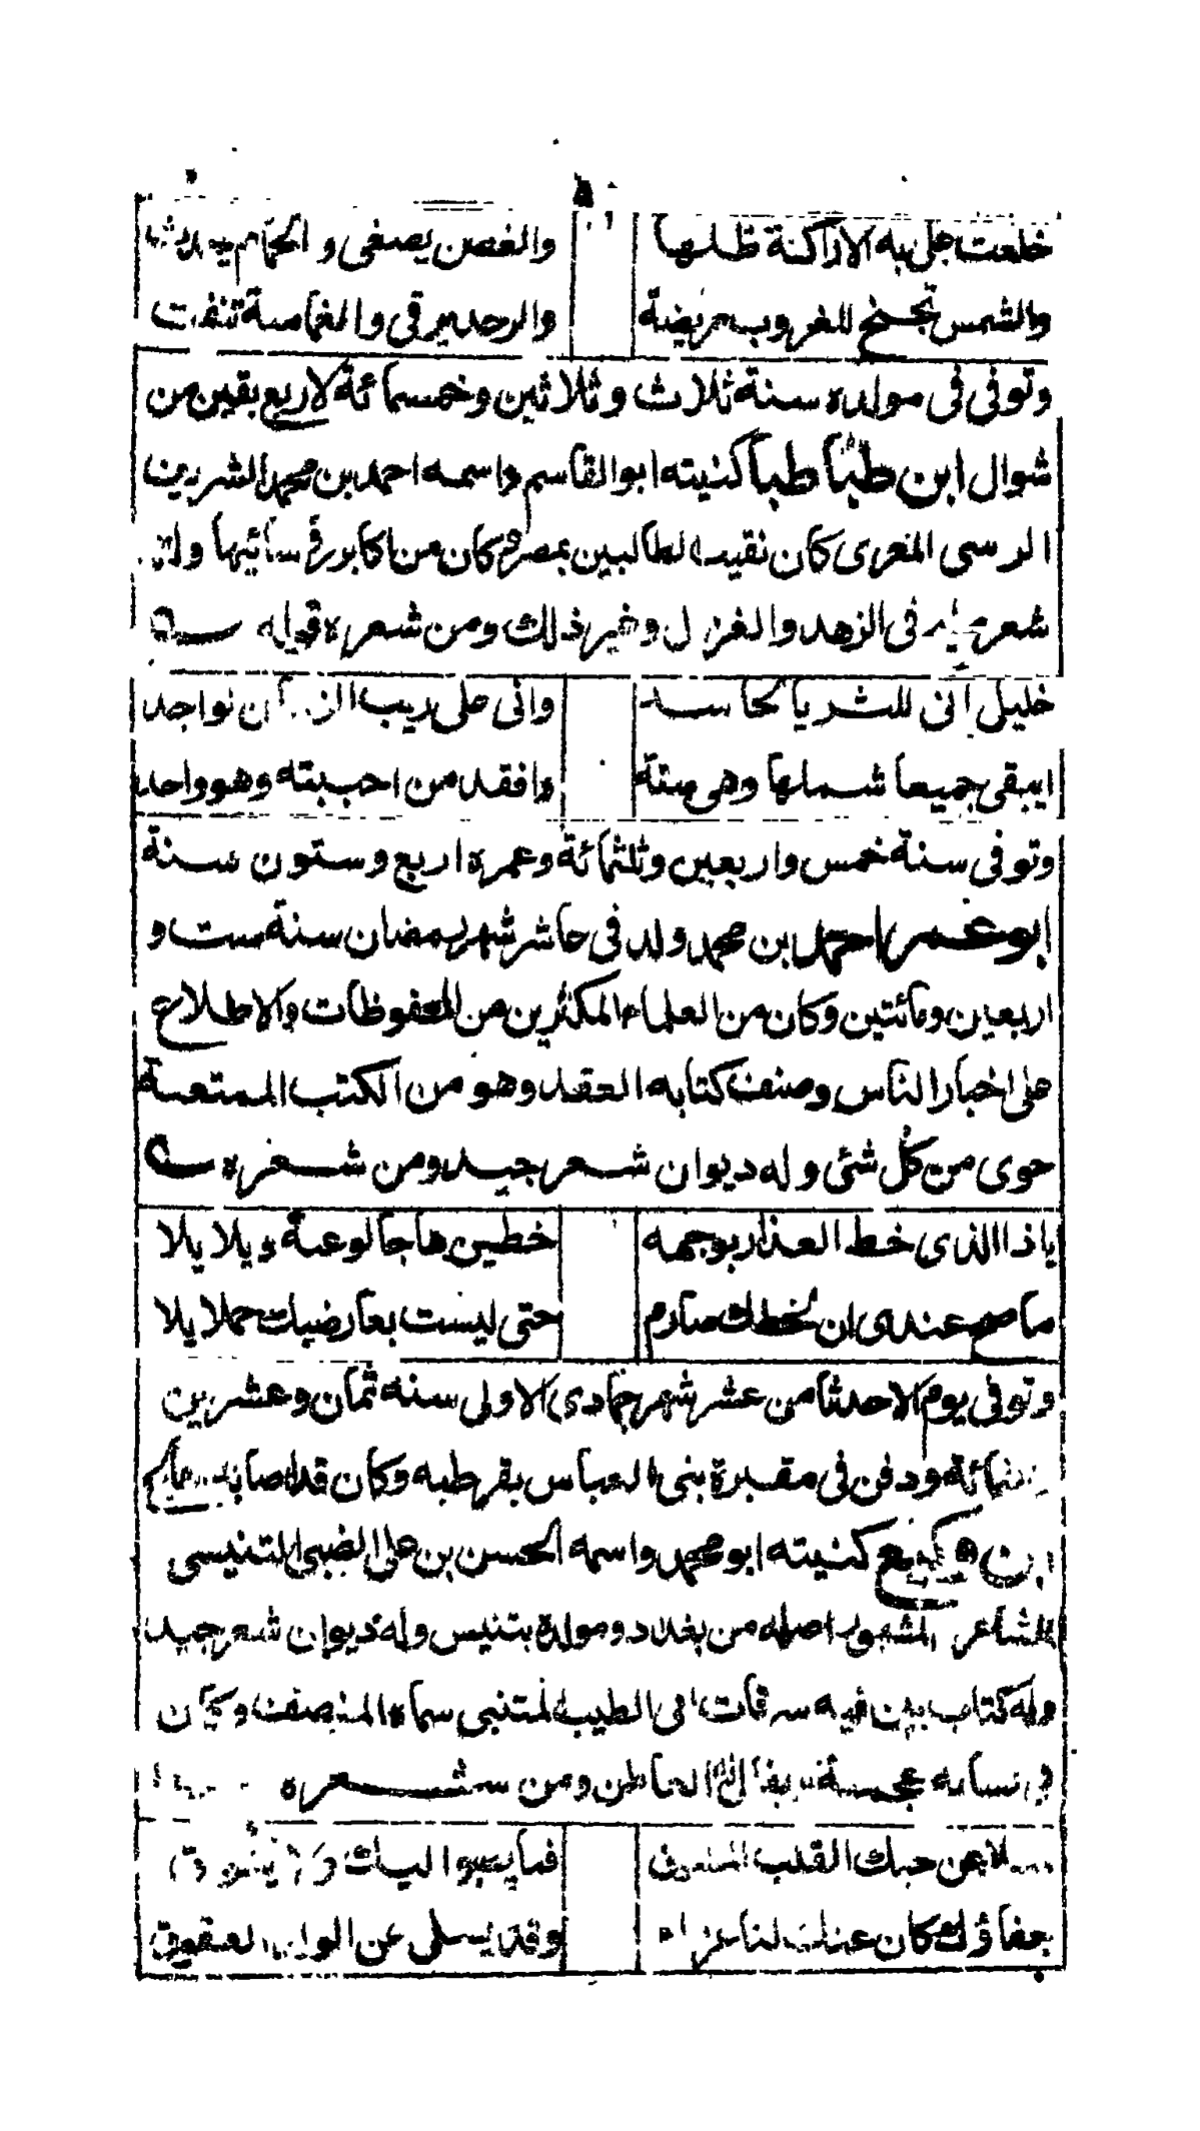 خلعت على به الاراكة ظلها والغصن يصغى و الحمام يحدث
والشمس تجنح للغروب مريضة والرعد يرقى والغمامة تنفث
وتوفى فى مولده سنة ثلاث وثلاثين وخمسمائة لاربع بقين من
شوال ابن طباطبا كنيته ابوالقاسم واسمه احمد بن محمد الشريف
الرسى المصرى كان نقيب الطالبين بمصر وكان من اكابر رؤسائها وله
شعر فى الزهد والغزل وغير ذلك ومن شعره قوله
خليلى انى للثريا لحاسد وانى على ريب الزمان لواجد
ايبقى جميعا شملها وهى ستة وافقد من احببته وهو واحد
وتوفى سنة خمس واربعين وثلثمائة وعمره اربع وستون سنة
ابوعمر احمد بن محمد ولد فى عاشر شهر رمضان سنة ست و
اربعين ومائتين وكان من العلماء المكثرين من المحفوظات والاطلاع
على اخبار الناس وصنف كتابه العقد وهو من الكتب الممتعة
حوى من كل شئى وله ديوان شعر جيد ومن شعره
ياذاالذى خط العذار بوجهه خطين هاجا لوعة وبلابلا
ماصح عندى ان لحظك صارم حتى لبست بعارضيك حملايلا
وتوفى يوم الاحد ثامن عشر شهر جمادى الاولى سنه ثمان وعشرين
وثلثمائة ودفن فى مقبرة بنى العباس بقرطبه وكان قد اصابه فالج
ابن وكيع كنيته ابو محمد واسمه الحسن بن على الضبى التنيسى
الشاعر المشهور اصله من بغداد ومولدة بتنيس وله ديوان شعر جيد
وله كتاب بين فيه سرقات ابى الطيب المتنبى سماه المنصف وكان
فى لسانه عجمة ومن شعره
سلا عن حبك القلب المشوق فما يصبوا اليك
جفاؤك كان عنك لنا عزاء وقد يسلى عن الولد العقوق